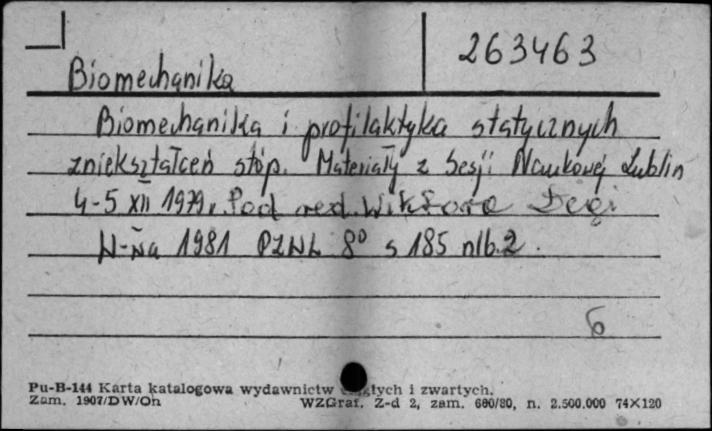 263463
Biomechanika
Biomechanika i profilaktyka statycznych
zniekształceń stóp. Materiały z Sesji Naukowej Lublin
4-5 XII 1979 r. Pod red. Wiktora Degi
W-wa 1981 PZWL 8° s 185 nlb. 2.
6
Pu-B-144 Karta katalogowa wydawnictw ciągłych i zwartych.
Zam. 1907/DW/Oh WZGraf. Z-d 2, zam. 680/80, n. 2.500.000 74×120